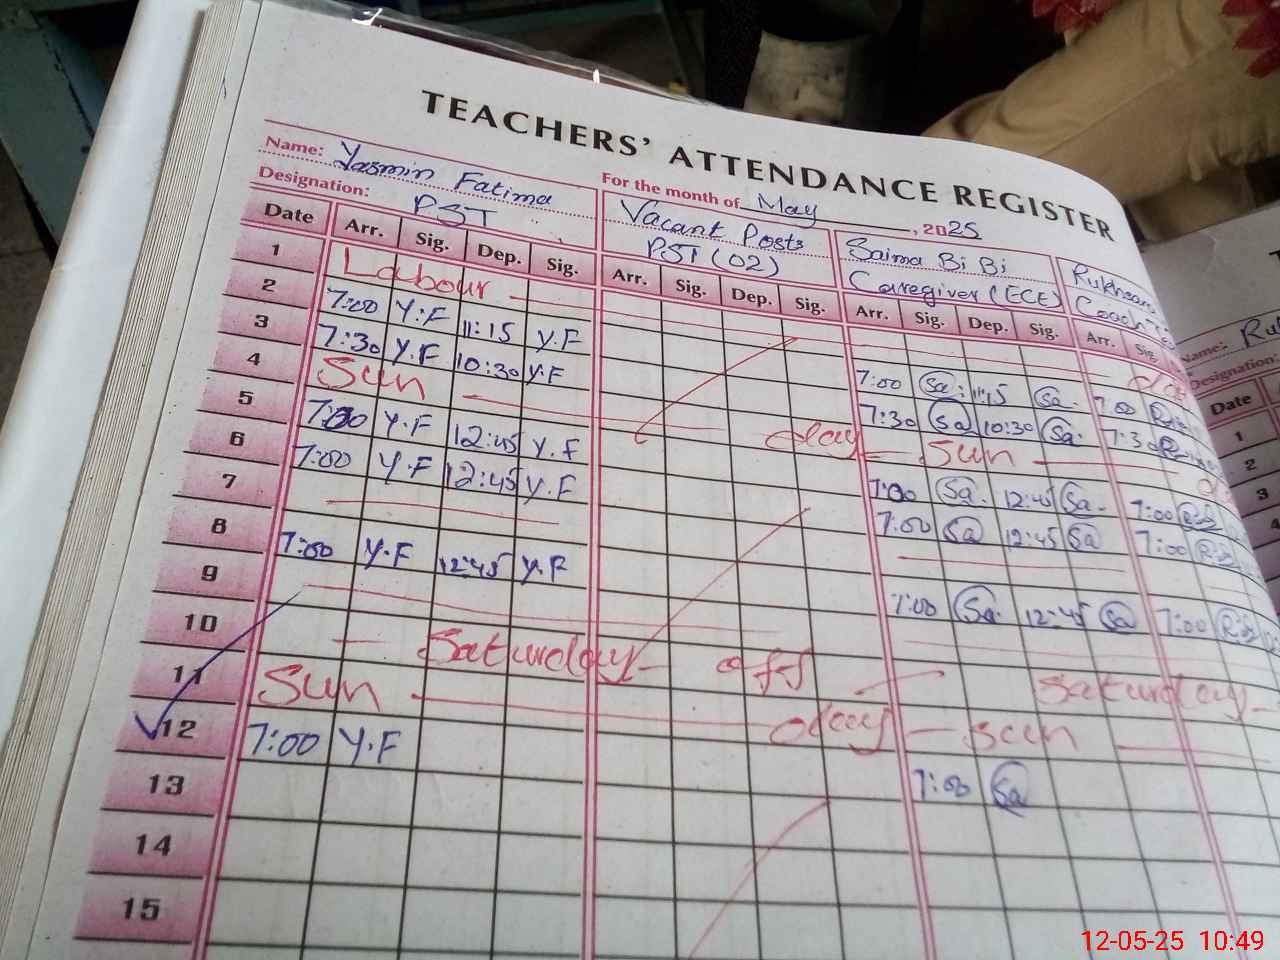 TEACHERS' ATTENDANCE REGISTER
Name: Yasmin Fatima
For the month of May, 2025
Designation: PST
Vacant Posts
PST (02)
Saima Bi Bi
Caregiver (ECE)
Date Arr. Sig. Dep. Sig. Arr. Sig. Dep. Sig. Arr. Sig. Dep. Sig. Arr. Sig.
1 Labour
2 7:00 Y.F 11:15 Y.F 7:00 Sa 11:15 Sa 7:00
3 7:30 Y.F 10:30 Y.F 7:30 Sa 10:30 Sa 7:30
4 Sun day Sun
5 7:00 Y.F 12:45 Y.F 7:00 Sa 12:45 Sa 7:00
6 7:00 Y.F 12:45 Y.F 7:00 Sa 12:45 Sa 7:00
7
8 7:00 Y.F 12:45 Y.F 7:00 Sa 12:45 Sa 7:00
9
10 Saturday off Saturday
11 Sun day Sun
12 7:00 Y.F 7:00 Sa
13
14
15
Name:
Designation:
Date
1
2
3
4
12-05-25 10:49